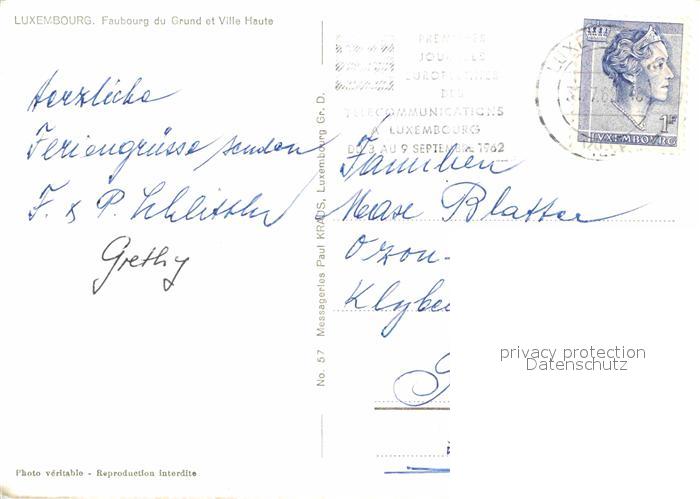 LUXEMBOURG. Faubourg du Grund et Ville Haute
Herzliche
Feriengrüsse senden
F. & P.
Grethy
Photo véritable - Reproduction interdite
No. 57 Messageries Paul KRAUS, Luxembourg Gr. D.
PREMIÈRES
JOURNÉES
EUROPÉENNES
DES
TÉLÉCOMMUNICATIONS
À LUXEMBOURG
DU 3 AU 9 SEPTEMBRE 1962
1F
LUXEMBOURG
Familien
Blatter
Ozon-
Klybe
privacy protection
Datenschutz